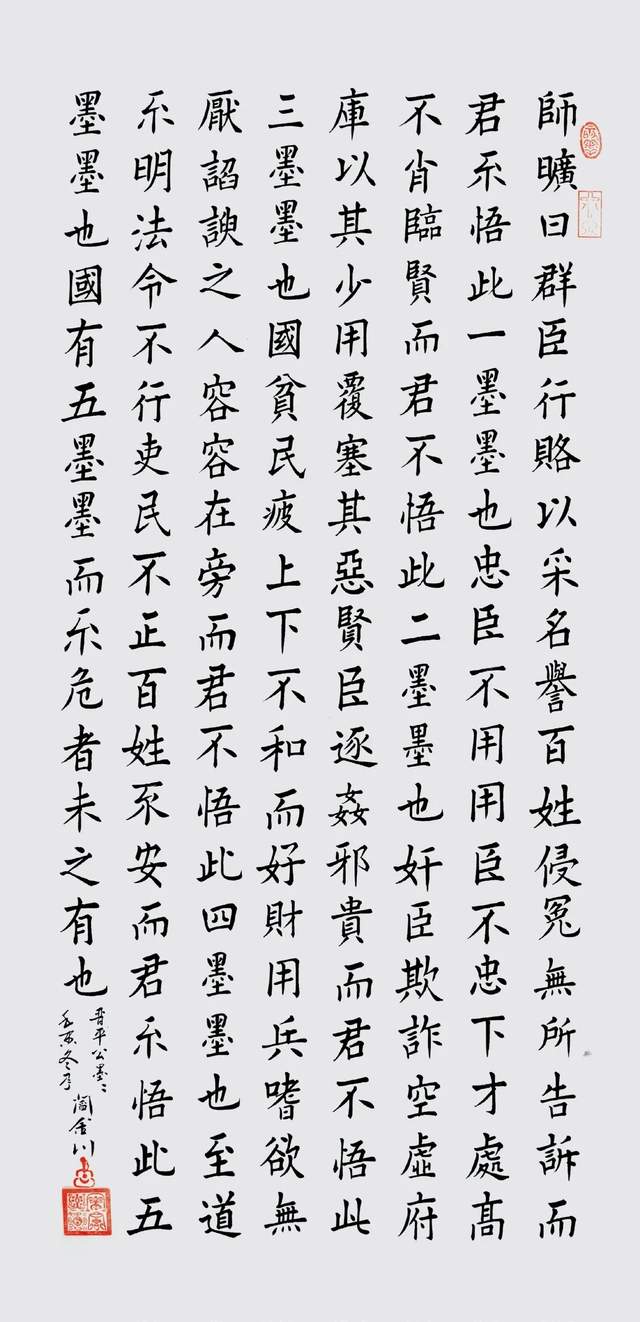 師曠曰群臣行賂以采名譽百姓侵冤無所告訴而
君不悟此一墨墨也忠臣不用用臣不忠下才處高
不肖臨賢而君不悟此二墨墨也奸臣欺詐空虛府
庫以其少用覆塞其惡賢臣逐姦邪貴而君不悟此
三墨墨也國貧民疲上下不和而好財用兵嗜欲無
厭諂諛之人容容在旁而君不悟此四墨墨也至道
不明法令不行吏民不正百姓不安而君不悟此五
墨墨也國有五墨墨而不危者未之有也
晋平公墨〻
冬月 金川